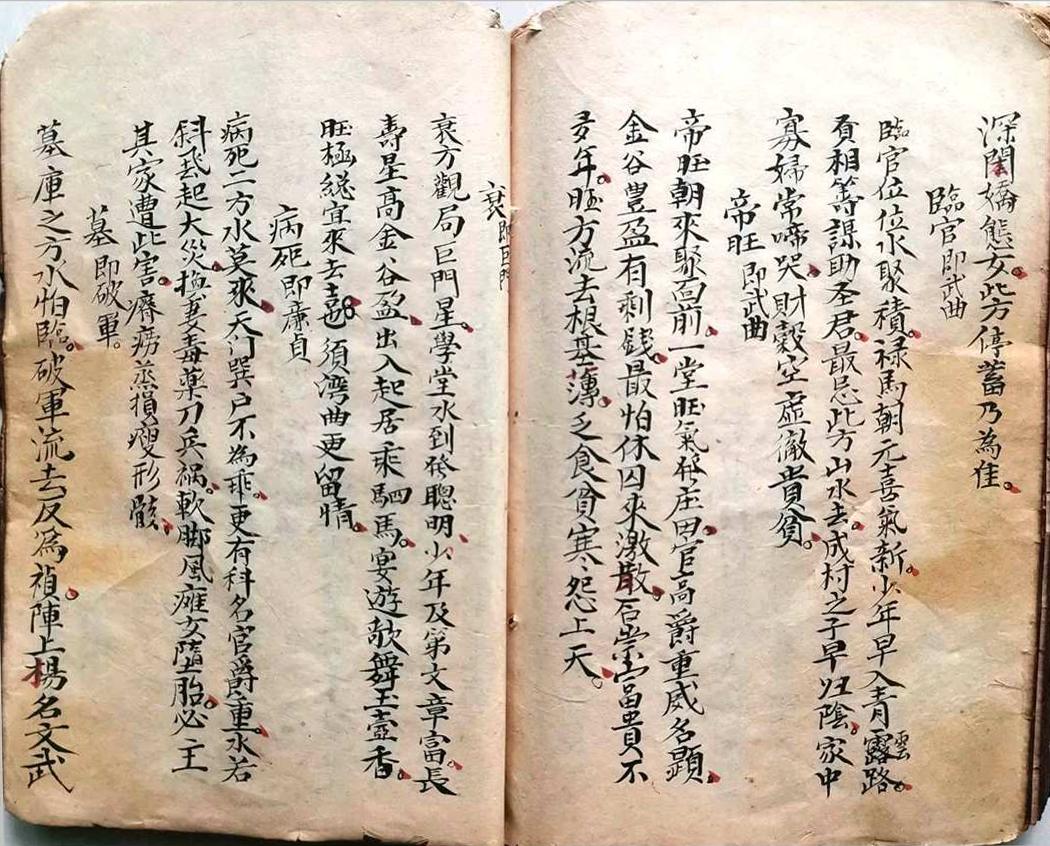 深閨嬌態女。此方停蓄乃為佳。
臨官即武曲
臨官位位水聚積。禄馬朝元喜氣新。少年早入青雲路。
宰相等謀助圣君。最忌此方山水去。成村之子早归陰。家中
寡婦常啼哭。財穀空虛徹貴貧。
帝旺即武曲
帝旺朝來聚面前。一堂旺氣發庄田。官高爵重威名顯。
金谷豊盈有剩錢。最怕休囚來激散。石崇富貴不
多年。旺方流去根基薄。乏食貧寒怨上天。
衰即巨門
衰方觀局巨門星。學堂水到發聰明。少年及第文章富。長
壽星高金谷盈。出入起居乘駟馬。宴遊歌舞玉壺香。
旺極総宜來去喜。須湾曲更留情。
病死即廉貞
病死二方水莫來。天门巽户不為乖。更有科名官爵重。水若
斜飛起大災。換妻毒藥刀兵禍。軟脚風瘫女墮胎。必主
其家遭此害。癆癆蒸損瘦形骸。
墓即破軍。
墓庫之方水怕臨。破軍流去反為禎。陣上楊名文武